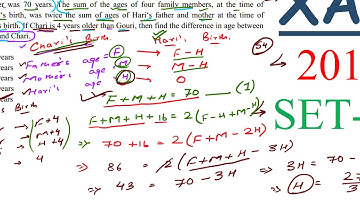 was 70 years. The sum of the ages of four family members, at the time of
's birth, was twice the sum of ages of Hari's father and mother at the time of
birth. If Chari is 4 years older than Gouri, then find the difference in age between
and Chari.
Chari's Birth.
Hari's Birth.
years
Father's age = F
F - H
years
Mother's age = M
M - H
years
Hari's age = H
O
years
Birth
F + M + H = 70 — (1)
F+4
F + M + H + 16 = 2(F - H + M - H)
M+4
H+4
70 + 16 = 2(F + M - 2H)
4
⇒ 86 = 2(F + M + H - 3H)
⇒ 43 = 70 - 3H
⇒ 3H = 70 -
⇒ H = 27
3
54
XA
201
SET-